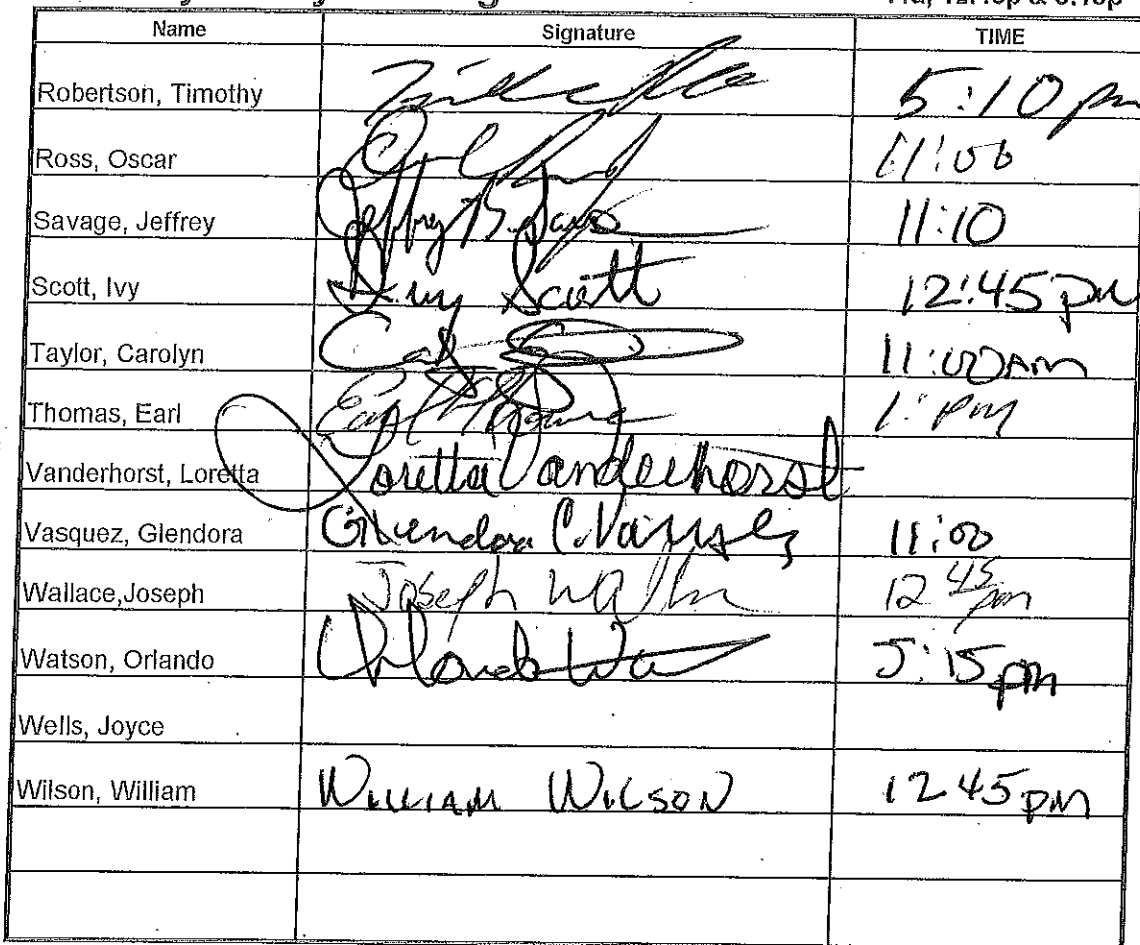 Name Signature TIME
Robertson, Timothy 5:10 pm
Ross, Oscar 11:00
Savage, Jeffrey 11:10
Scott, Ivy Ivy Scott 12:45 pm
Taylor, Carolyn 11:00 AM
Thomas, Earl Earl Thomas 1: PM
Vanderhorst, Loretta Loretta Vanderhorst
Vasquez, Glendora Glendora C. Vasquez 11:00
Wallace,Joseph Joseph 12 45 pm
Watson, Orlando Orlando 5:15 pm
Wells, Joyce
Wilson, William WILLIAM WILSON 12 45 pm